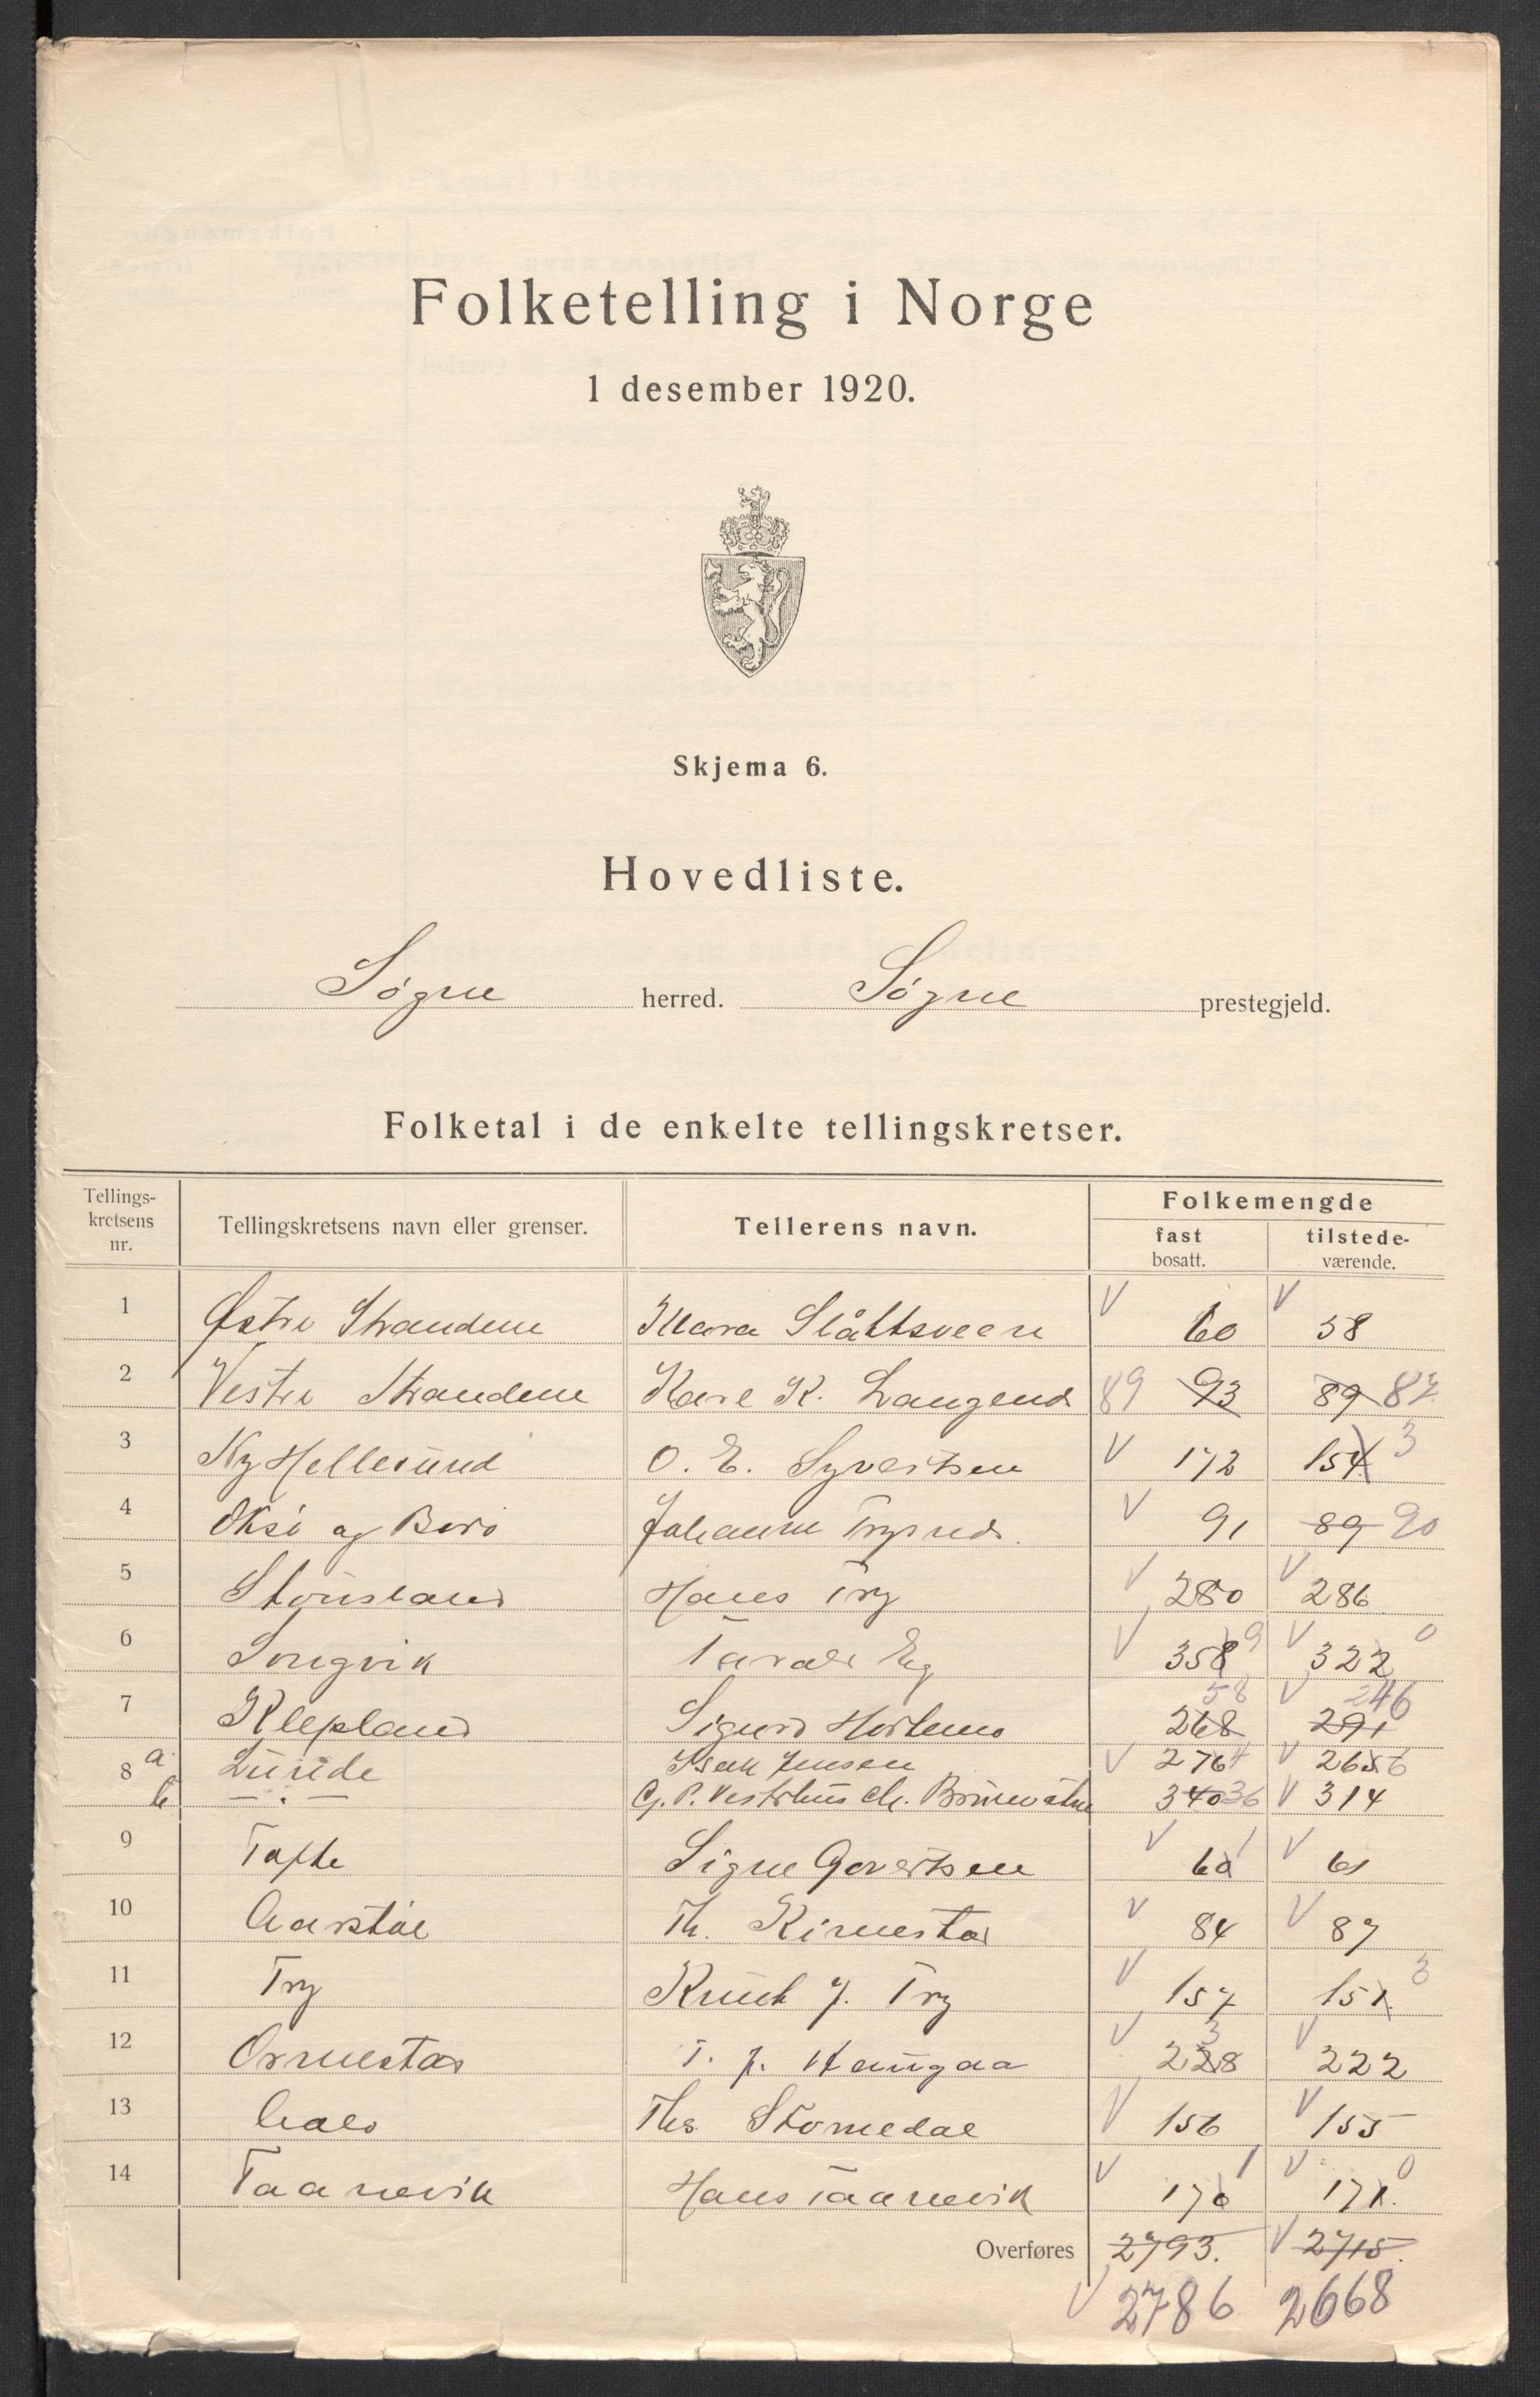 Folketelling i Norge
1 desember 1920.
Skjema 6.
Hovedliste.
Søgne herred. Søgne prestegjeld.
Folketal i de enkelte tellingskretser.
Tellings-kretsens nr. Tellingskretsens navn eller grenser. Tellerens navn. Folkemengde
fast bosatt. tilstede-værende.
1 Østre Strandene Klara Slåttsveen V 60 V 58
2 Vestre Strandene Karl K. Langenes 89 93 89 87
3 Ny Hellesund O. E. Syvertsen V 172 154 3
4 og Johanne V 91 89 90
5 Stousland Hans Try V 280 V 286
6 Songvik Tarald Eg V 358 9 V 322 0
7 Klepland Sigurd 268 58 V 291 246
8 a Lunde Isak Jensen V 276 4 V 265 6
b — " — G. P. 340 36 V 314
9 Tofte Signe Govertsen V 60 1 V 61
10 Aarstøl Th. Kirnestad V 84 V 87
11 Try Knut J. Try V 157 151 3
12 Ormestad T. J. Haugaa V 228 3 V 222
13 Aalo Ths. Stomedal V 156 V 155
14 Taanevik Hans Taanevik V 170 1 V 171. 0
Overføres 2793. V 2715.
V 2786 2668